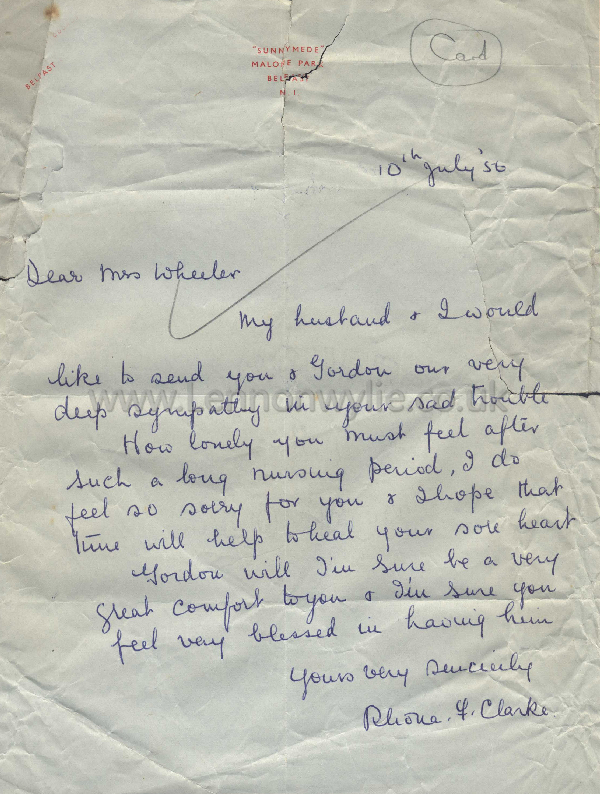 "SUNNYMEDE"
MALONE PARK
BELFAST
N. I.
BELFAST
Card
10th July '56
Dear Mrs Wheeler
My husband & I would
like to send you & Gordon our very
deep sympathy in your sad trouble
How lonely you must feel after
such a long nursing period, I do
feel so sorry for you & I hope that
time will help to heal your sore heart
Gordon will I'm sure be a very
great comfort to you & I'm sure you
feel very blessed in having him
Yours very sincerely
Rhona. F. Clarke.
www.Lennonwylie.co.uk